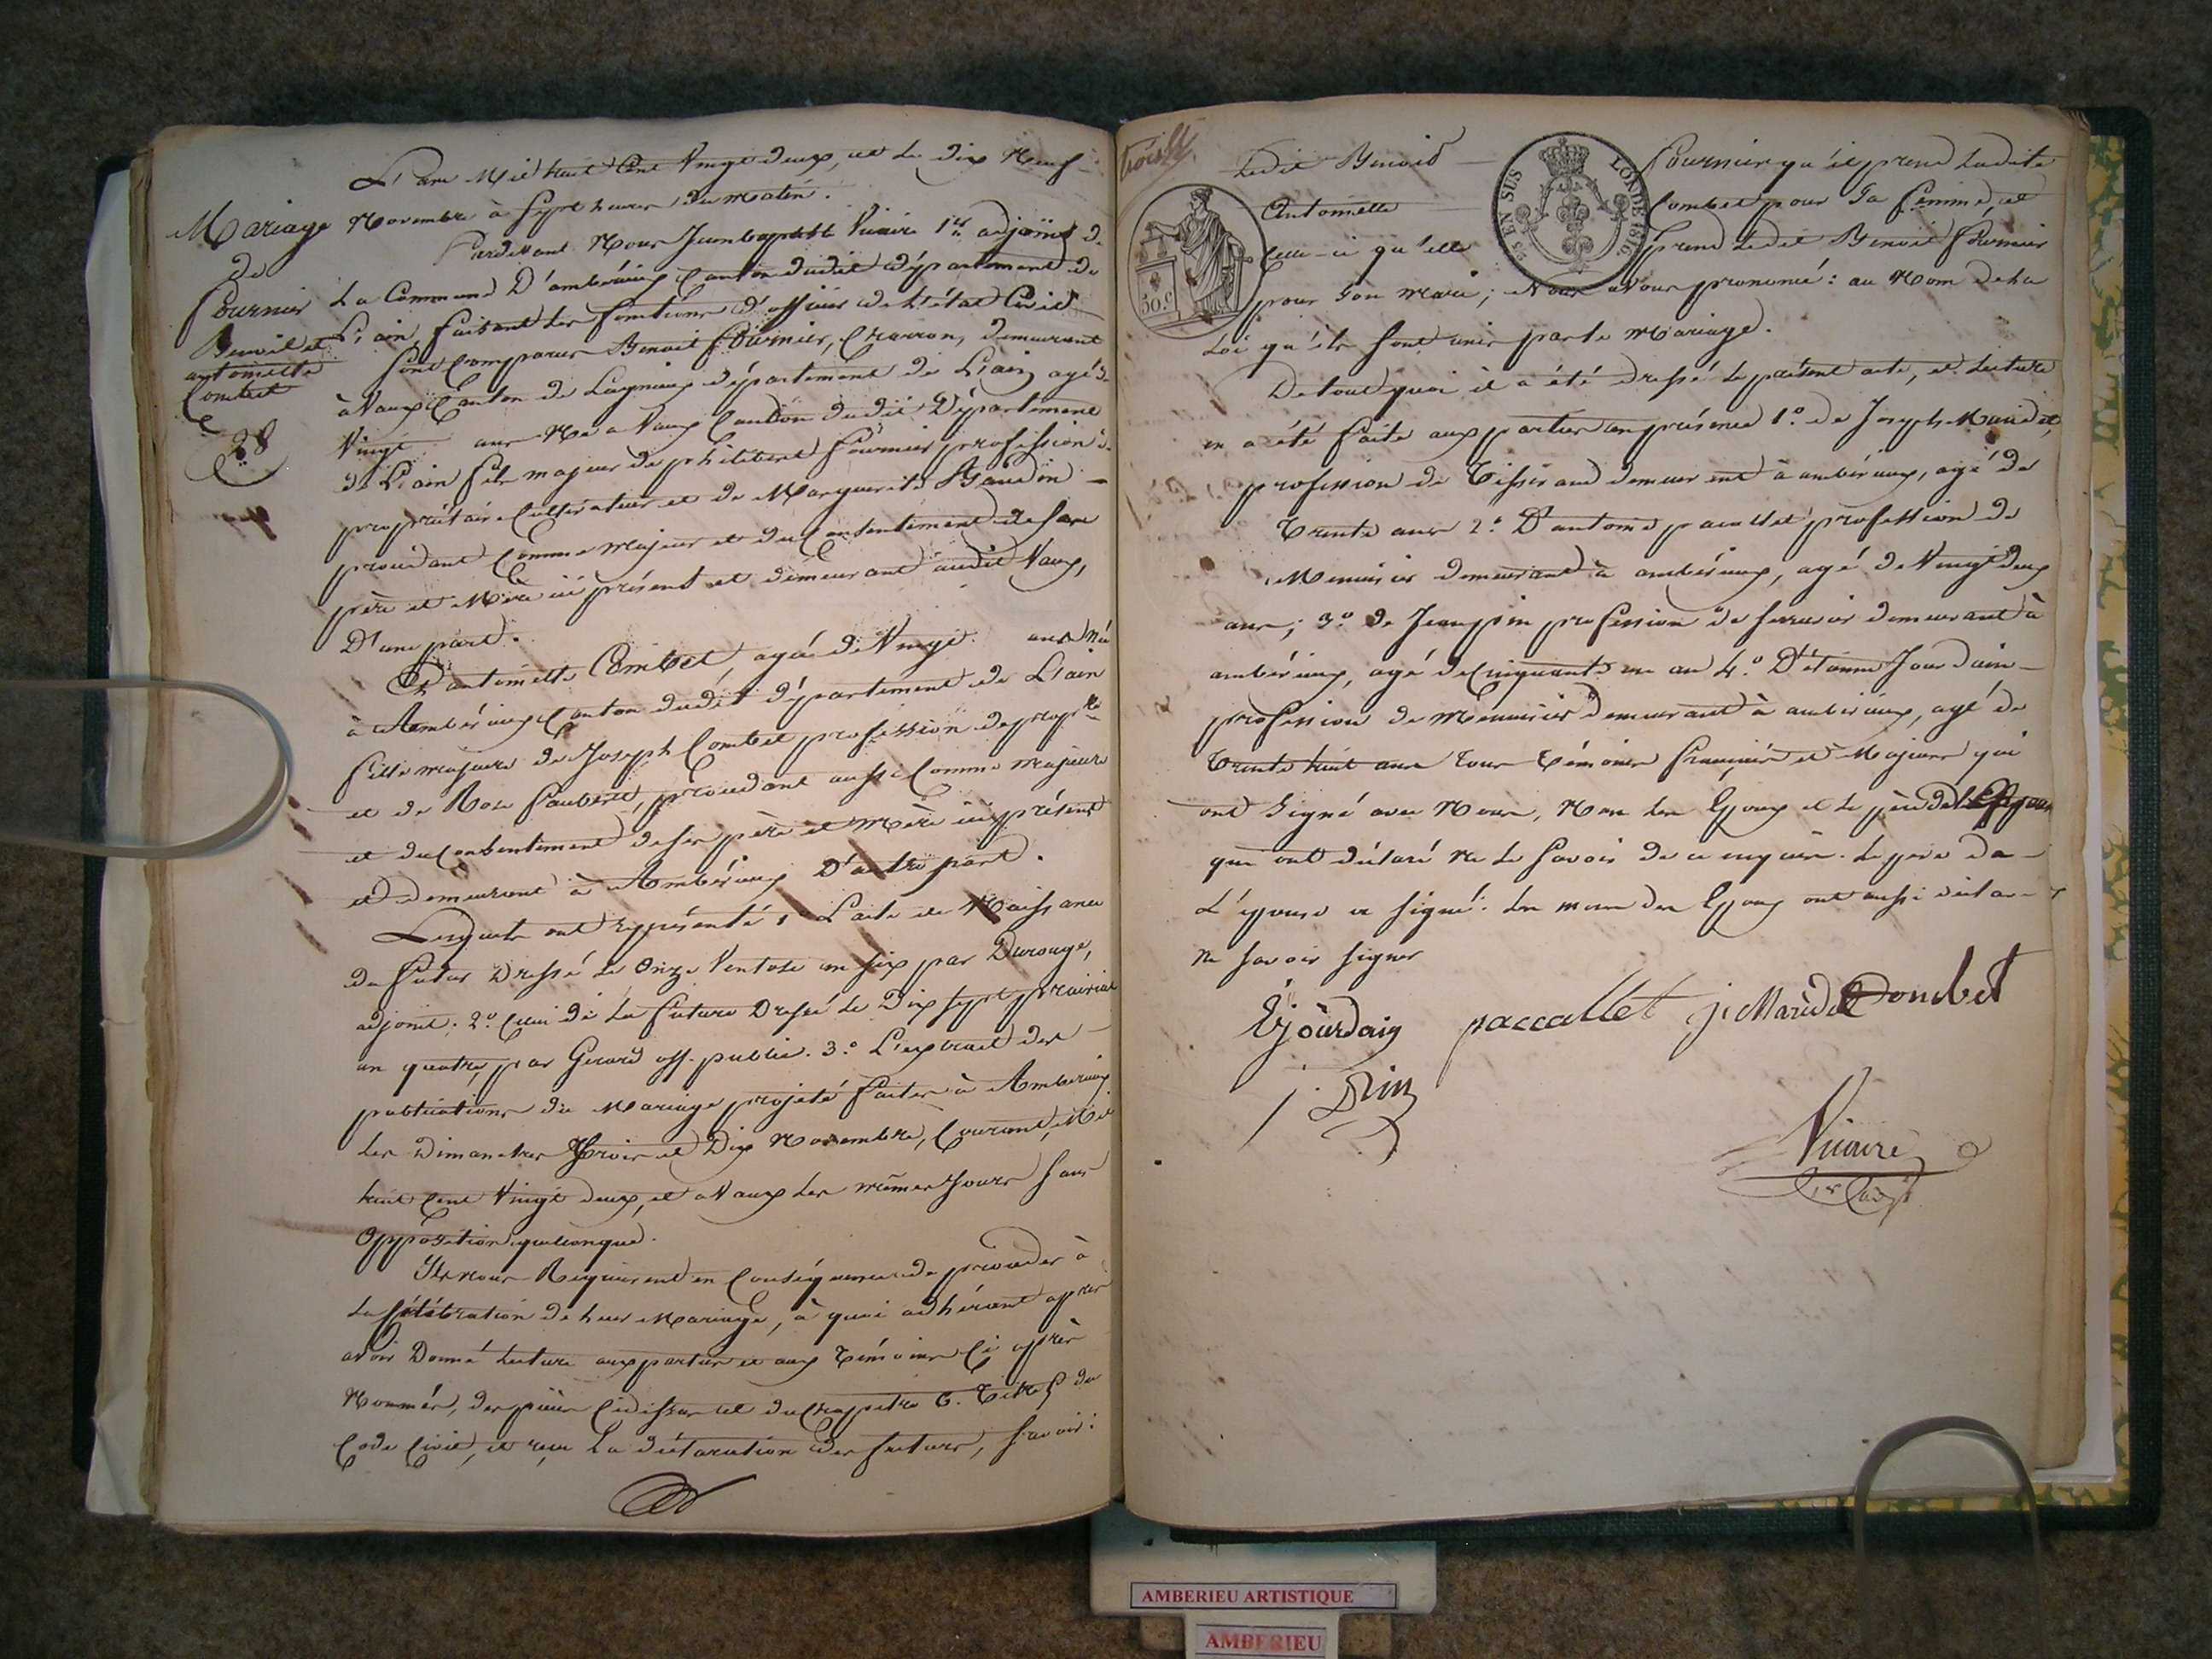 L'an Mil huit Cent Vingt deux, et le dix Neuf
Novembre à Sept heures du matin.
Mariage
de
Fournier
Benoit et
antoinette
Combet
28
Pardevant Nous Jean baptiste Vicaire 1er adjoint de
La Commune D'ambérieux Canton dudit département de
L'ain, faisant les fonctions d'officier de L'état Civil
Sont Comparus Benoit Fournier, Charron, demeurant
à Vaux Canton de Lagnieux département de L'ain, agé de
Vingt ans Né a Vaux Canton dudit Département
de L'ain fils majeur de philibert Fournier profession de
propriétaire Cultivateur et de Marguerite
procédant Comme Majeur et du Consentement de ses
père et Mère ici présent et demeurant audit Vaux,
D'une part.
Et antoinette Combet, agée de Vingt ans née
à Ambérieux Canton dudit département de L'ain
fille majeure de Joseph Combet profession de propre
et de Rose Faubert, procédant aussi Comme Majeure
et du Consentement de ses père et Mère ici présent
et demeurant à Ambérieux D'autre part.
Lesquels ont représenté 1o L'acte de Naissance
du futur Dressé le Onze Ventose an six par Durouge,
adjoint; 2o Celui de La future Dressé le Dix sept prairial
an quatre, par Girard off. public. 3o L'extrait des
publications du Mariage projeté faites à Ambérieux
Les Dimanches Trois et Dix Novembre, Courant, Mil
huit Cent Vingt deux, et a Vaux les mêmes Jours sans
Opposition quelconque.
Ils nous Requirent en Conséquence de procéder à
la Célébration de leur Mariage, à quoi adhérant après
avoir Donné Lecture aux parties et aux témoins Ci après
Nommés, des pièces Cidessus et du Chapitre 6. Titre 5 du
Code Civil, et reçu La déclaration des futurs, Savoir:
Ledit Benoit Fournier qu'il prend Ladite
Antoinette Combet pour Sa femme, et
Celle-ci qu'elle prend Ledit Benoit Fournier
pour Son mari; Nous avons prononcé: au Nom de La
Loi qu'ils sont unis par le Mariage.
23 EN SUS
LOI DE 1816.
50.c
De tout quoi il a été dressé le présent acte, et Lecture
en a été faite aux parties en présence 1o. de Joseph
profession de Tisserand demeurant à ambérieux, agé de
Trente ans 2o. D'antoine paccallet profession de
Menuisier demeurant à ambérieux, agé de Vingt deux
ans; 3o. de Jean pin profession de serrurier demeurant à
ambérieux, agé de Cinquante un an 4o. D'étienne Jourdain
profession de Menuisier demeurant à ambérieux, agé de
Trente huit ans tous témoins français et Majeurs qui
ont Signé avec Nous, Non les Epoux et le père de l'Epoux
qui ont déclaré Ne le Savoir de ce enquis. Le père de
L'épouse a signé. Les meres des Epoux ont aussi déclaré
ne savoir signer
E jourdain paccallet Combet
j. pin
Vicaire
1er adjt
AMBERIEU ARTISTIQUE
AMBERIEU